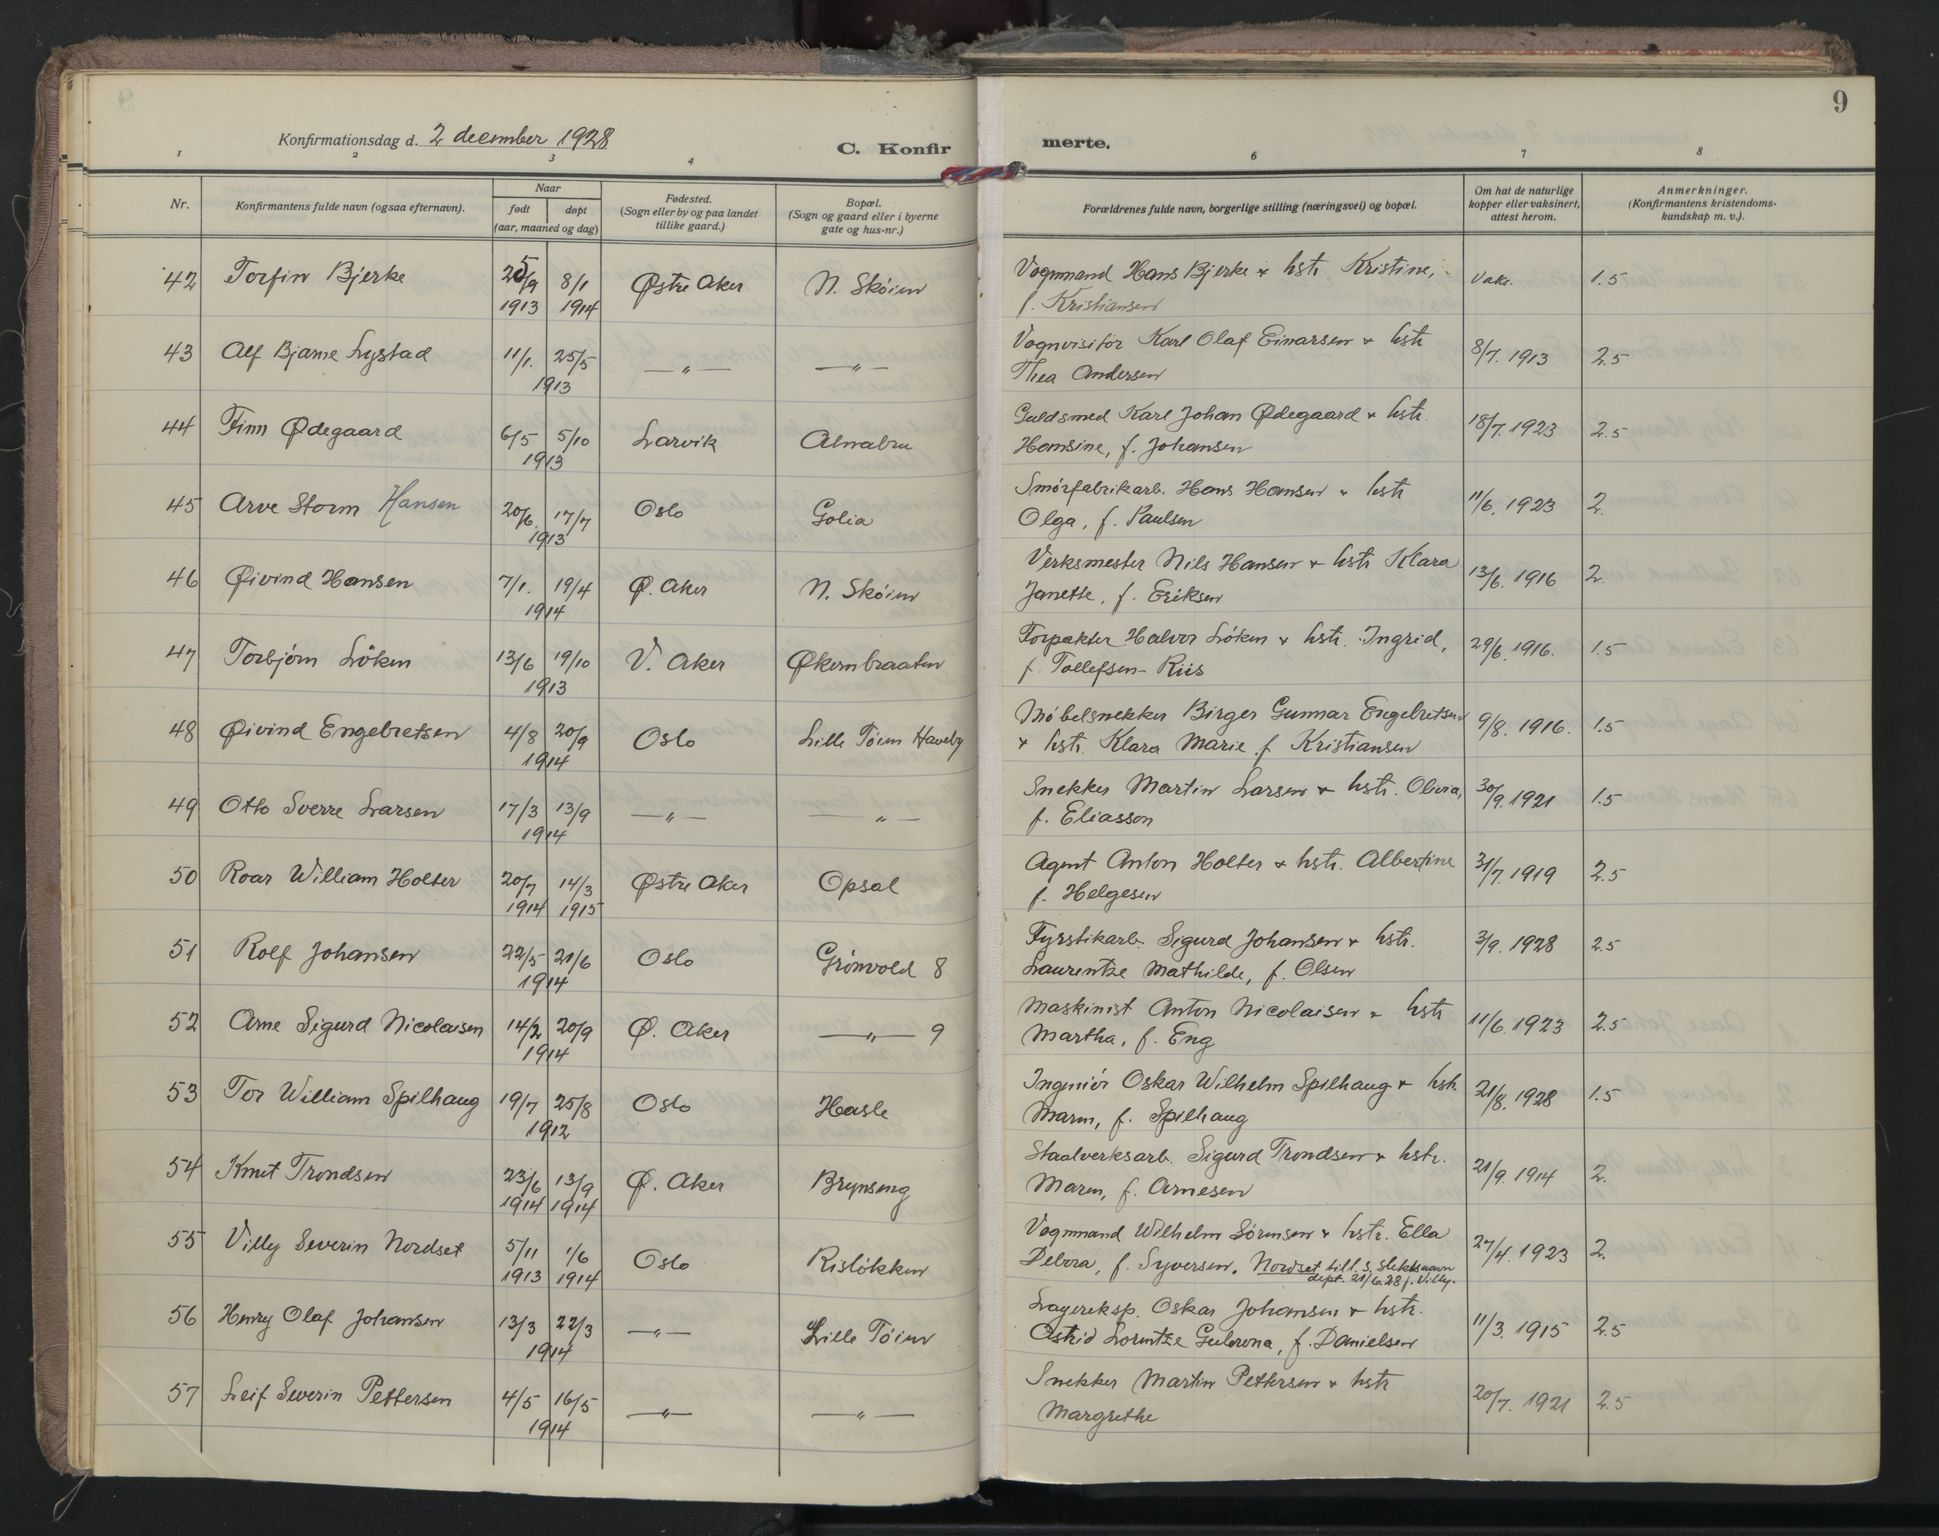 9
Konfirmationsdag d. 2 december 1928
C. Konfir merte.
1 2 3 4 5 6 7 8
Nr.
Konfirmantens fulde navn (ogsaa efternavn).
Naar
født døpt
(aar, maaned og dag)
Fødested.
(Sogn eller by og paa landet
tillike gaard.)
Bopæl.
(Sogn og gaard eller i byerne
gate og hus-nr.)
Forældrenes fulde navn, borgerlige stilling (næringsvei) og bopæl.
Om hat de naturlige
kopper eller vaksinert,
attest herom.
Anmerkninger.
(Konfirmantens kristendoms-
kundskap m. v.).
42 Torfin Bjerke 25/9 8/1 Østre Aker N. Skøien Vognmand Hans Bjerke + hstr. Kristine, Vaks. 1.5
1913 1914 f. Kristiansen
43 Alf Bjarne Lystad 11/1. 25/5 — „ — — „ — Vognvisitør Karl Olaf Einarsen + hstr 8/7. 1913 2.5
1913 Thea Andersen
44 Finn Ødegaard 6/5 5/10 Larvik Alnabru Guldsmed Karl Johan Ødegaard + hstr. 18/7. 1923 2.5
1913 Hansine, f. Johansen
45 Arve Storm Hansen 20/6. 17/7 Oslo Golia Smørfabrikarb. Hans Hansen + hstr 11/6. 1923 2.
1913 Olga, f. Paulsen
46 Øivind Hansen 7/1. 19/4 Ø. Aker N. Skøien Verksmester Nils Hansen + hstr Klara 13/6. 1916 2.
1914 Janette, f. Eriksen
47 Torbjørn Løken 13/6 19/10 V. Aker Økernbraaten Forpakter Halvor Løken + hstr. Ingrid, 29/6. 1916. 1.5
1913 f. Tollefsen-Riis
48 Øivind Engebretsen 4/8 20/9 Oslo Lille Tøien Haveby Møbelsnekker Birger Gunnar Engebretsen 9/8. 1916. 1.5
1914 + hstr. Klara Marie f. Kristiansen
49 Otto Sverre Larsen 17/3 13/9 — „ — — „ — Snekker Martin Larsen + hstr. Olivia, 30/9. 1921 1.5
1914 f. Eliasson
50 Roar William Holter 20/7 14/3 Østre Aker Opsal Agent Anton Holter + hstr. Albertine 31/7. 1919 2.5
1914 1915 f. Helgesen
51 Rolf Johansen 22/5 21/6 Oslo Grønvold 8 Fyrstikarb. Sigurd Johansen + hstr. 3/9. 1928 2.5
1914 Laurentze Mathilde, f. Olsen
52 Arne Sigurd Nicolaisen 14/2 20/9 Ø. Aker — „ — 9 Maskinist Anton Nicolaisen + hstr 11/6. 1923 2.5
1914 Martha, f. Eng
53 Tor William Spilhaug 19/7 25/8 Oslo Hasle Ingeniør Oskar Wilhelm Spilhaug + hstr. 21/8. 1928 1.5
1912 Maren, f. Spilhaug
54 Knut Trondsen 23/6 13/9 Ø. Aker Brynseng Staalverksarb. Sigurd Trondsen + hstr. 21/9. 1914 2.
1914 1914 Maren, f. Arnesen
55 Villy Severin Nordset 5/11 1/6 Oslo Risløkken Vognmand Wilhelm Sørensen + hstr. Ella 27/4. 1923 2.
1913 1914 Debora, f. Syversen. Nordset till. s. slektsnavn
dept. 21/6.28 f. Villy.
56 Henry Olaf Johansen 13/3 22/3 — „ — Lille Tøien Lagereksp. Oskar Johansen + hstr. 11/3. 1915 2.5
1914 Astrid Lorentze Gulorona, f. Danielsen
57 Leif Severin Pettersen 4/5 16/5 — „ — — „ — Snekker Martin Pettersen + hstr 20/7. 1921 2.5
1914 Margrethe